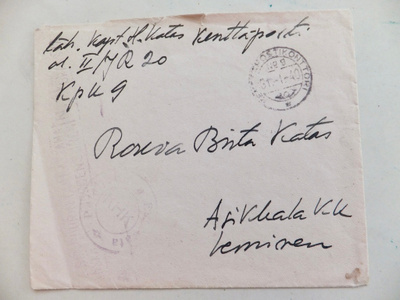 Läh. Kapt. H. Katas Kenttäposti
os. II/JR 20
KPK 9
KENTTÄPOSTIKONTTORI
Rouva Brita Katas
Asikkala KK